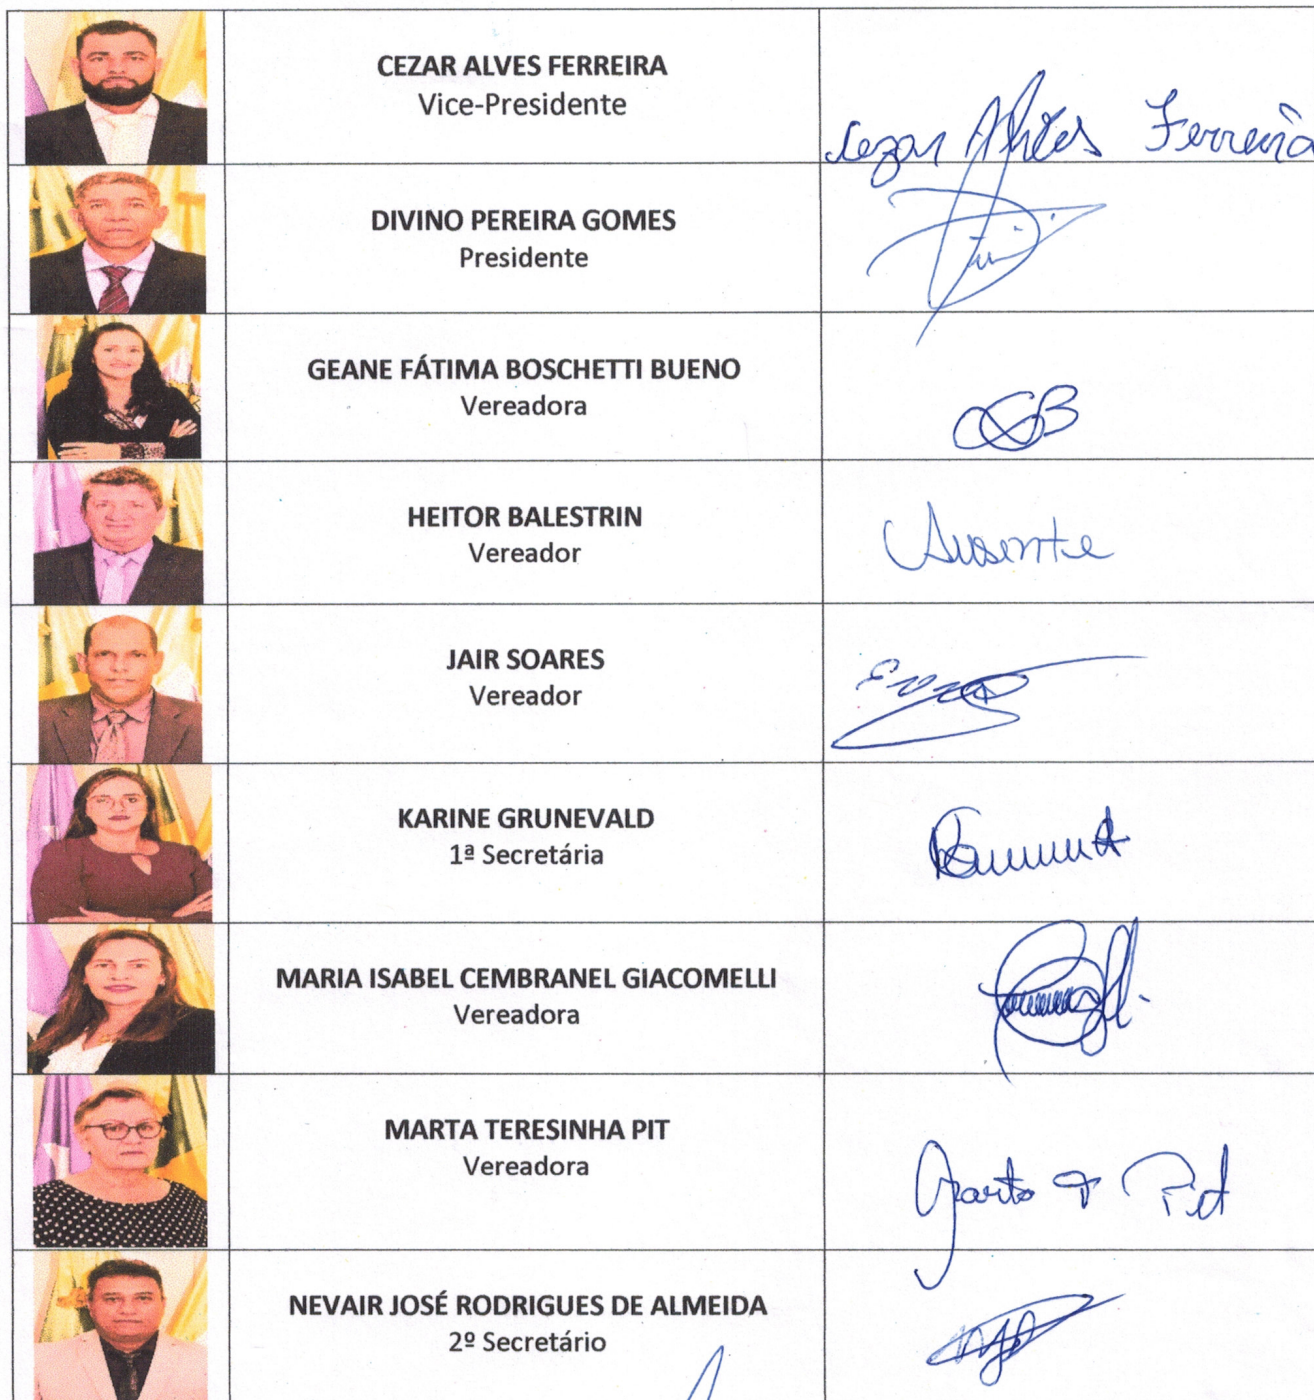 CEZAR ALVES FERREIRA
Vice-Presidente
Cezar Alves Ferreira
DIVINO PEREIRA GOMES
Presidente
GEANE FÁTIMA BOSCHETTI BUENO
Vereadora
HEITOR BALESTRIN
Vereador
Ausente
JAIR SOARES
Vereador
KARINE GRUNEVALD
1ª Secretária
MARIA ISABEL CEMBRANEL GIACOMELLI
Vereadora
MARTA TERESINHA PIT
Vereadora
Marta T Pit
NEVAIR JOSÉ RODRIGUES DE ALMEIDA
2º Secretário